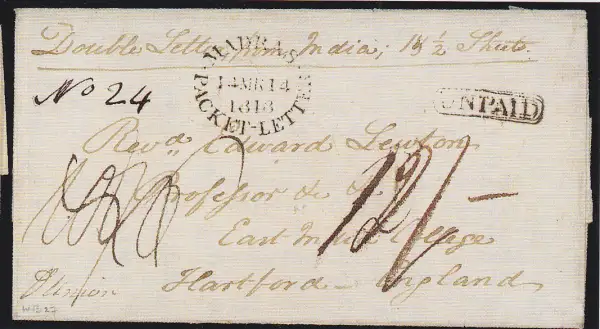 Double Letter from India; 1 1/2 Sheets.
MADRAS
14 MR 14
1818
PACKET-LETTER
No 24
UNPAID
Revd. Edward Lewton
Professor &c &c
12/-
East India College
Hartford - England